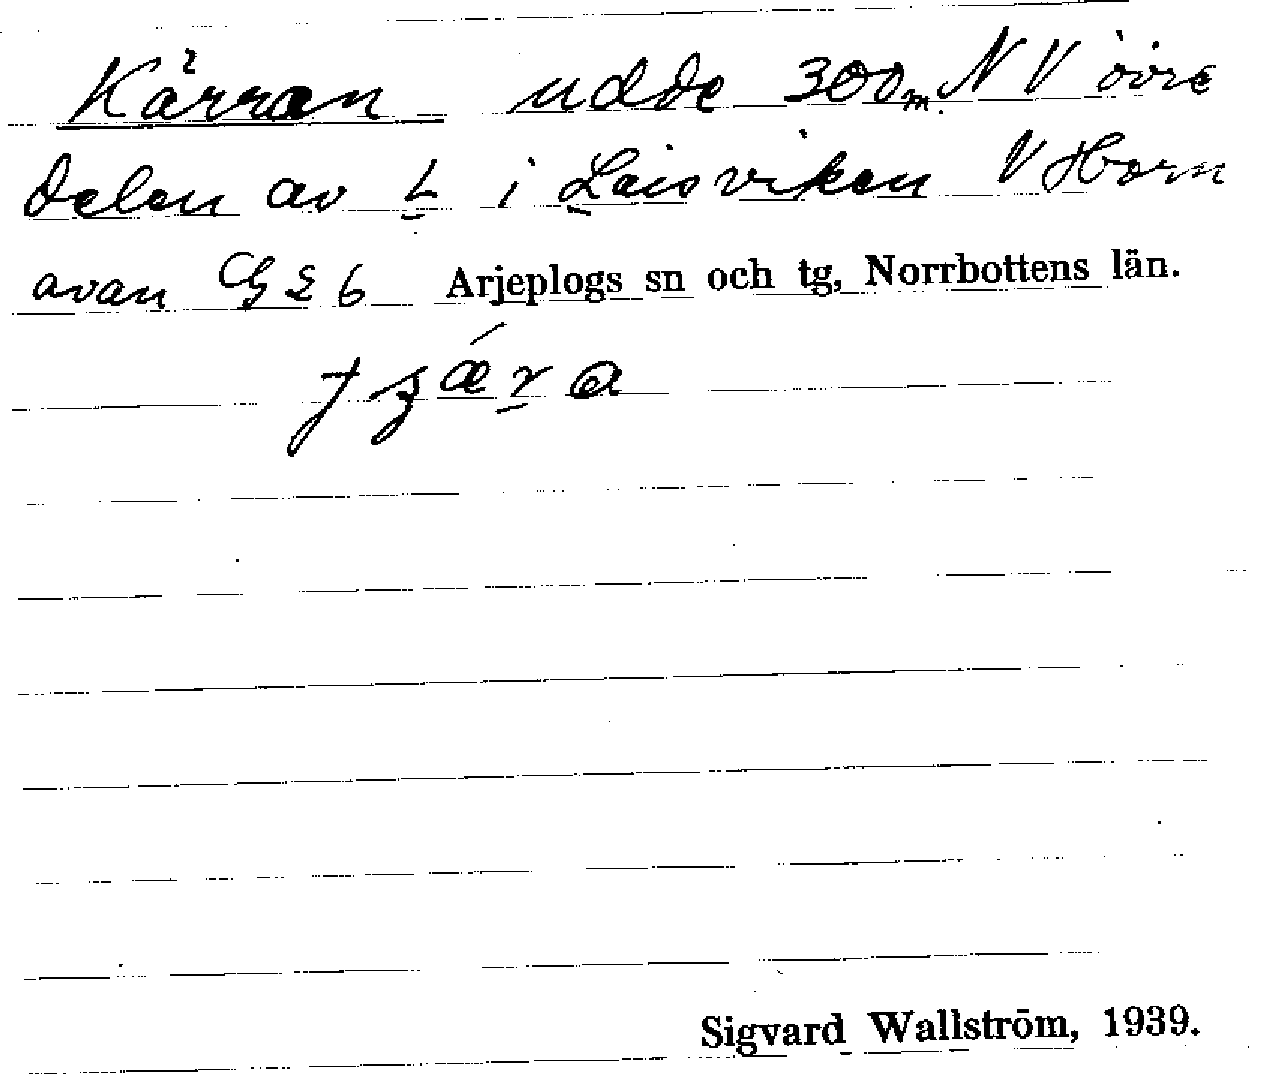 Kärran udde 300m NV övre
delen av L i Laisviken V Horn
avan G26 Arjeplogs sn och tg, Norrbottens län.
Sigvard Wallström, 1939.